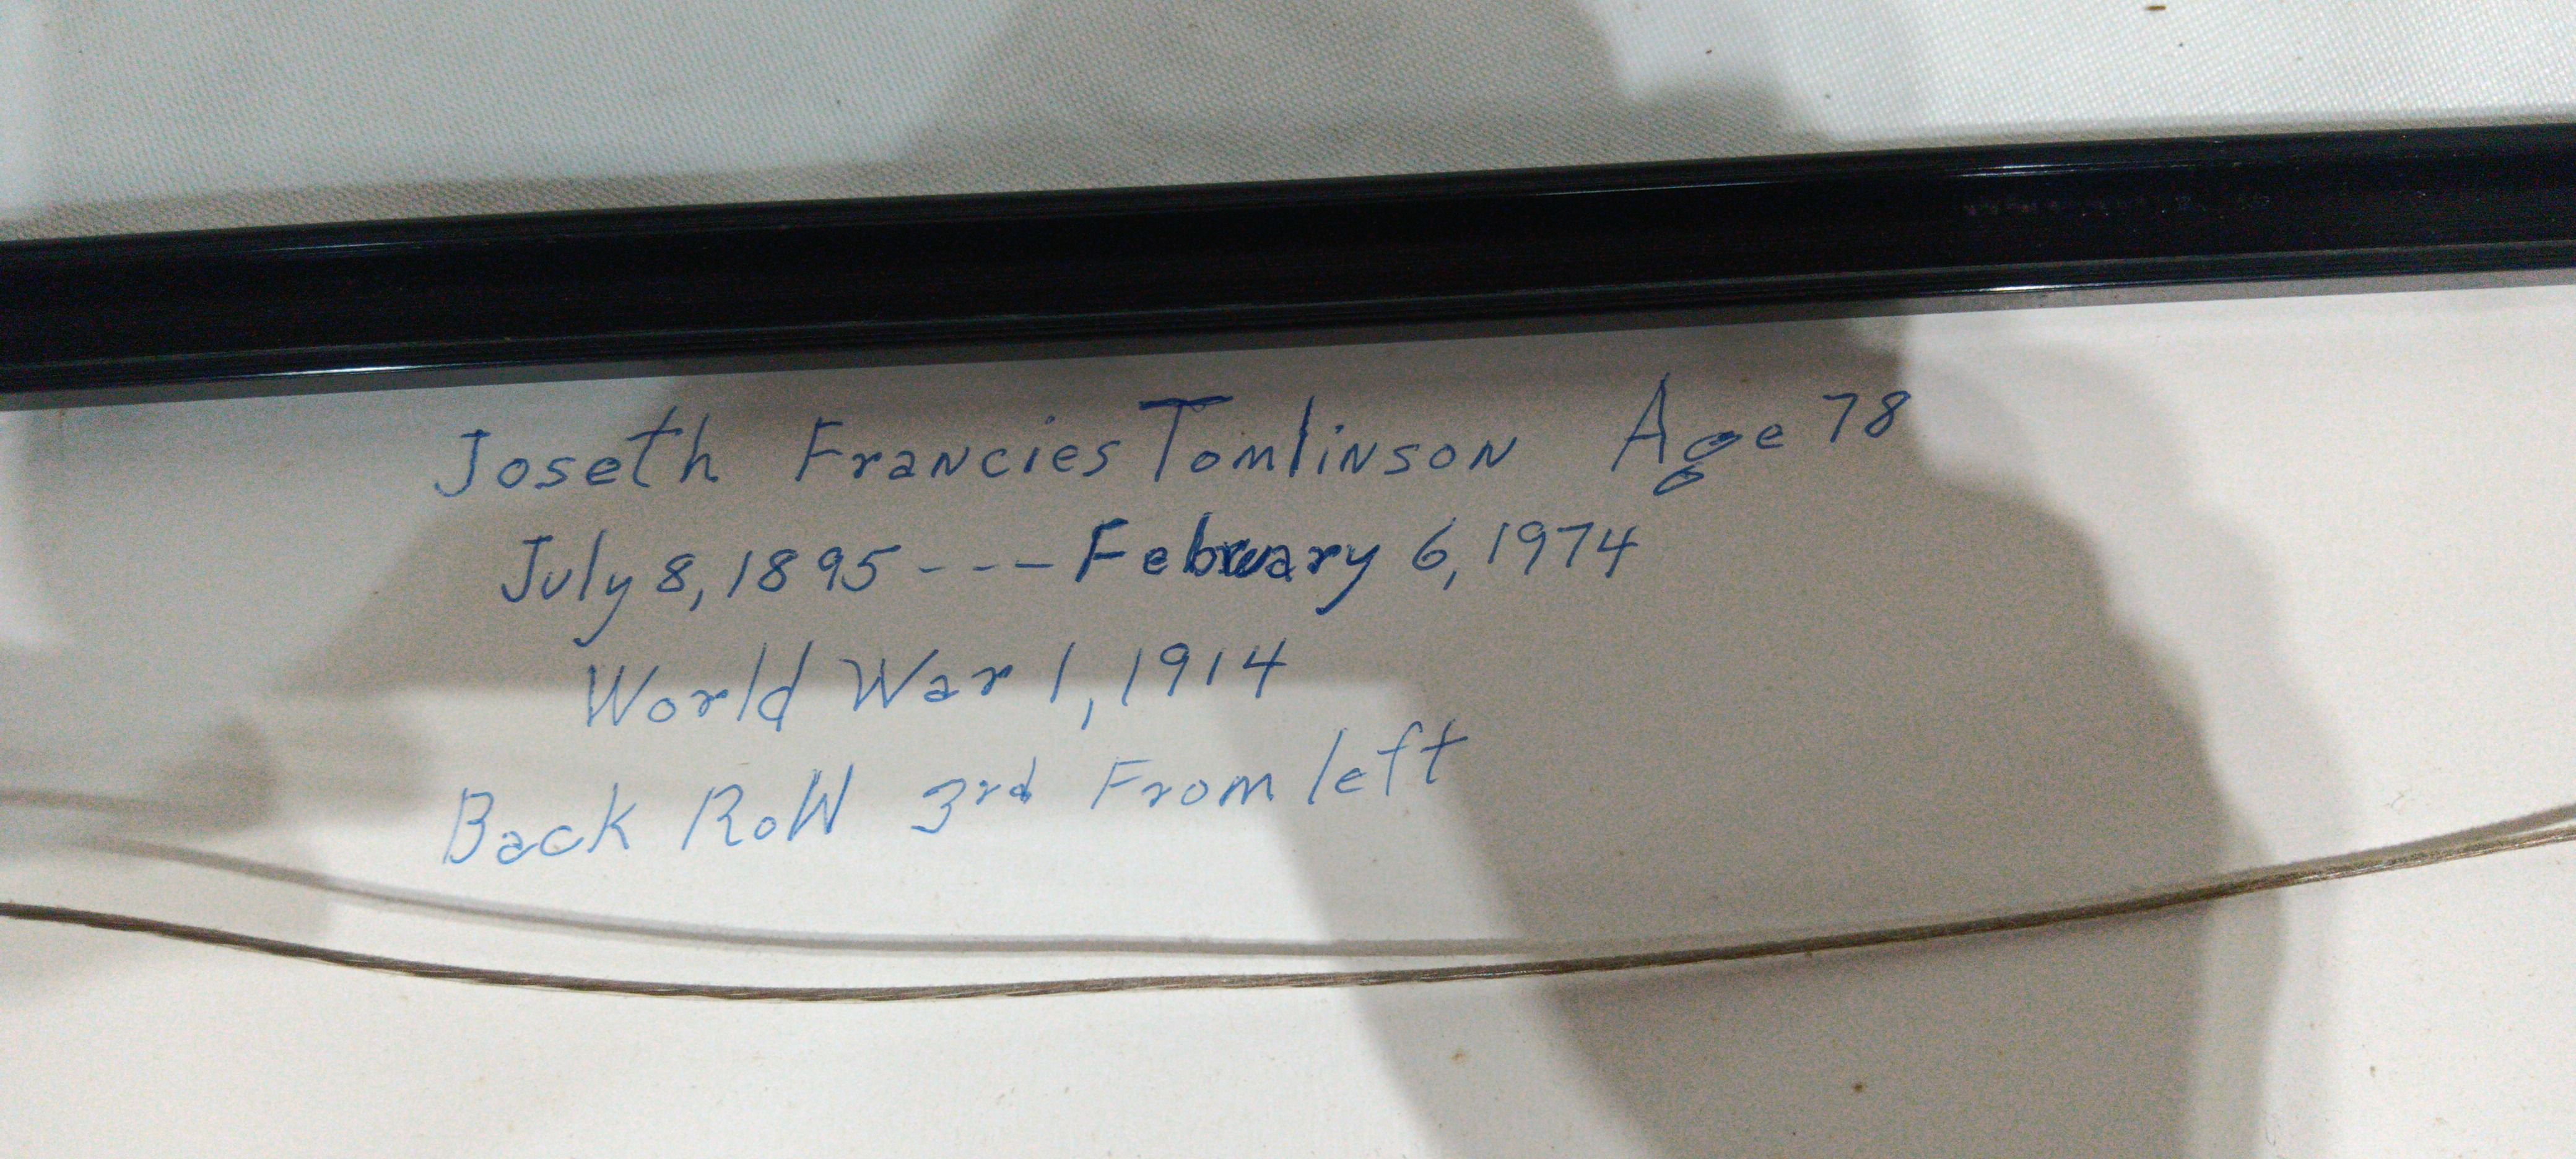 Joseth Francies Tomlinson Age 78
July 8, 1895 --- February 6, 1974
World War 1, 1914
Back RoW 3rd From left